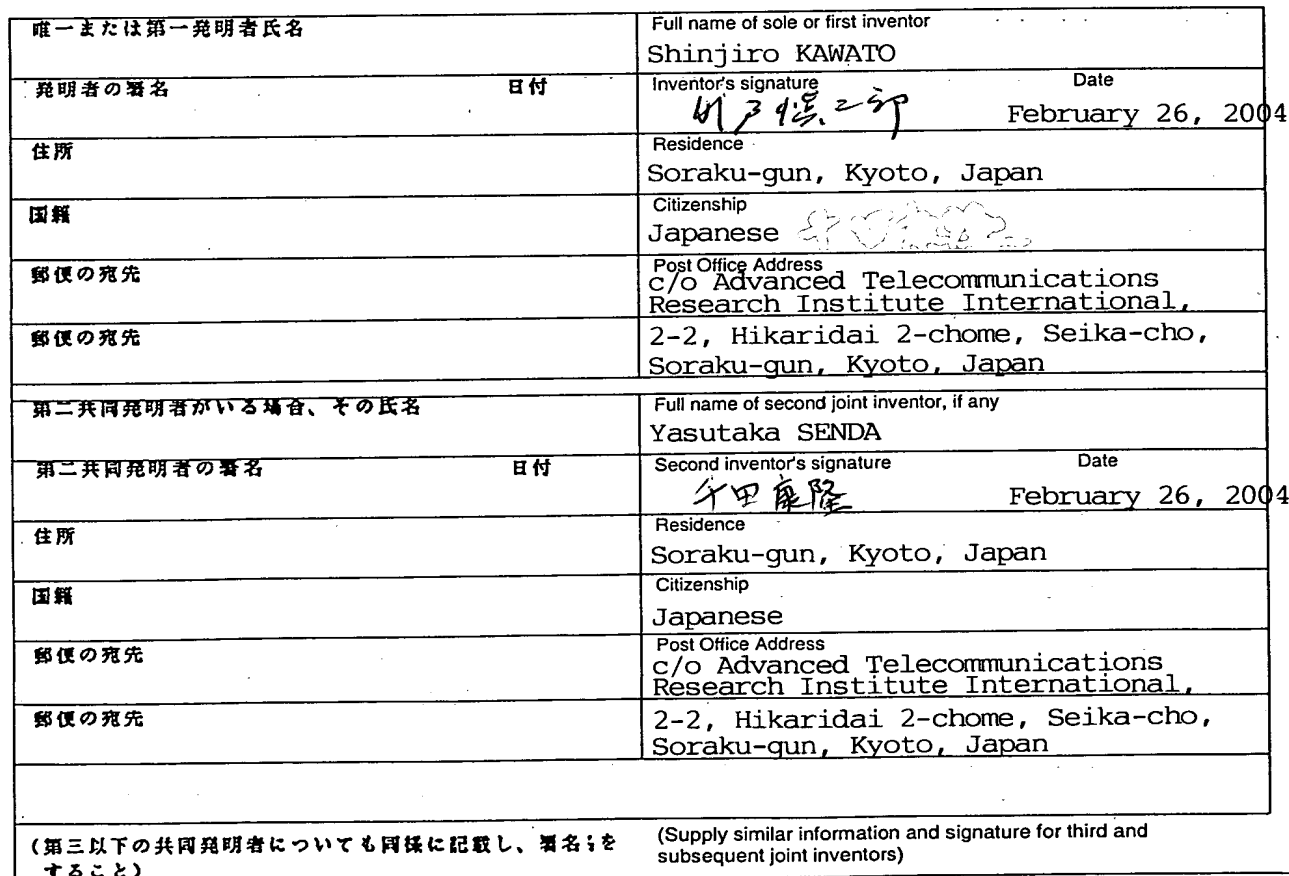 唯一または第一発明者氏名
Full name of sole or first inventor
Shinjiro KAWATO
発明者の署名 日付
Inventor's signature Date
February 26, 2004
住所
Residence
Soraku-gun, Kyoto, Japan
国籍
Citizenship
Japanese
郵便の宛先
Post Office Address
c/o Advanced Telecommunications
Research Institute International,
郵便の宛先
2-2, Hikaridai 2-chome, Seika-cho,
Soraku-gun, Kyoto, Japan
第二共同発明者がいる場合、その氏名
Full name of second joint inventor, if any
Yasutaka SENDA
第二共同発明者の署名 日付
Second inventor's signature Date
千田康隆 February 26, 2004
住所
Residence
Soraku-gun, Kyoto, Japan
国籍
Citizenship
Japanese
郵便の宛先
Post Office Address
c/o Advanced Telecommunications
Research Institute International,
郵便の宛先
2-2, Hikaridai 2-chome, Seika-cho,
Soraku-gun, Kyoto, Japan
(第三以下の共同発明者についても同様に記載し、署名を
すること)
(Supply similar information and signature for third and
subsequent joint inventors)